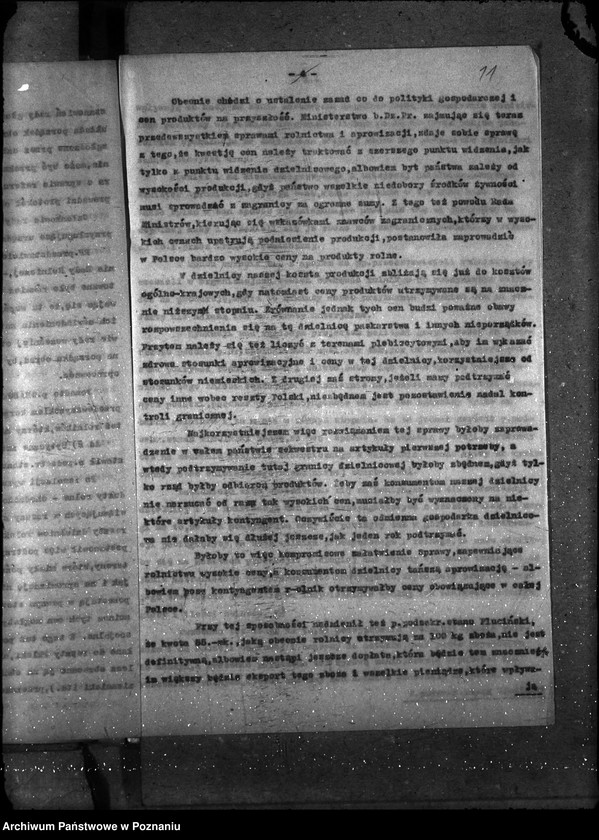 -4-
11
Obecnie chodzi o ustalenie zasad co do polityki gospodarczej i
cen produktów na przyszłość. Ministerstwo b.Dz.Pr. zajmując się teraz
przedewszystkiem sprawami rolnictwa i aprowizacji, zdaje sobie sprawę
z tego, że kwestję cen należy traktować z szerszego punktu widzenia, jak
tylko z punktu widzenia dzielnicowego, albowiem byt państwa należy od
wysokości produkcji, gdyż państwo wszelkie niedobory środków żywności
musi sprowadzać z zagranicy za ogromne sumy. Z tego też powodu Rada
Ministrów, kierując się wskazówkami znawców zagranicznych, którzy w wyso-
kich cenach upatrują podniesienie produkcji, postanowiła zaprowadzić
w Polsce bardzo wysokie ceny na produkty rolne.
W dzielnicy naszej koszta produkcji zbliżają się już do kosztów
ogólno-krajowych, gdy natomiast ceny produktów utrzymywane są na znacz-
nie niższym stopniu. Zrównanie jednak tych cen budzi poważne obawy
rozpowszechnienia się na tę dzielnicę paskarstwa i innych nieporządków.
Przytem należy się też liczyć z terenami plebiscytowymi, aby im wskazać
zdrowe stosunki aprowizacyjne i ceny w tej dzielnicy, korzystniejsze od
stosunków niemieckich. Z drugiej zaś strony, jeżeli mamy podtrzymać
ceny inne wobec reszty Polski, niezbędnem jest pozostawienie nadal kon-
troli granicznej.
Najkorzystniejszem więc rozwiązaniem tej sprawy byłoby zaprowa-
dzenie w całem państwie sekwestru na artykuły pierwszej potrzeby, a
wtedy podtrzymywanie tutej granicy dzielnicowej byłoby zbędnem, gdyż tyl-
ko rząd byłby odbiorcą produktów. Żeby zaś konsumentom naszej dzielnicy
nie narzucać od razu tak wysokich cen, musiałby być wyznaczony na nie-
które artykuły kontyngent. Oczywiście ta odmienna gospodarka dzielnico-
wa nie dałaby się dłużej jeszcze, jak jeden rok podtrzymać.
Byłoby to więc kompromisowe załatwienie sprawy, zapewniające
rolnictwu wysokie ceny, a konsumentom dzielnicy tańszą aprowizację - al-
bowiem poza kontyngentem r-olnik otrzymywałby ceny obowiązujące w całej
Polsce.
Przy tej sposobności nadmienił też p.podsekr.stanu Pluciński,
że kwota 55.-mk., jaką obecnie rolnicy otrzymują za 100 kg zboża, nie jest
definitywną, albowiem nastąpi jeszcze dopłata, która będzie tem znaczniejszą,
im większy będzie eksport tego zboża i wszelkie pieniądze, które wpływa-
ją
Archiwum Państwowe w Poznaniu